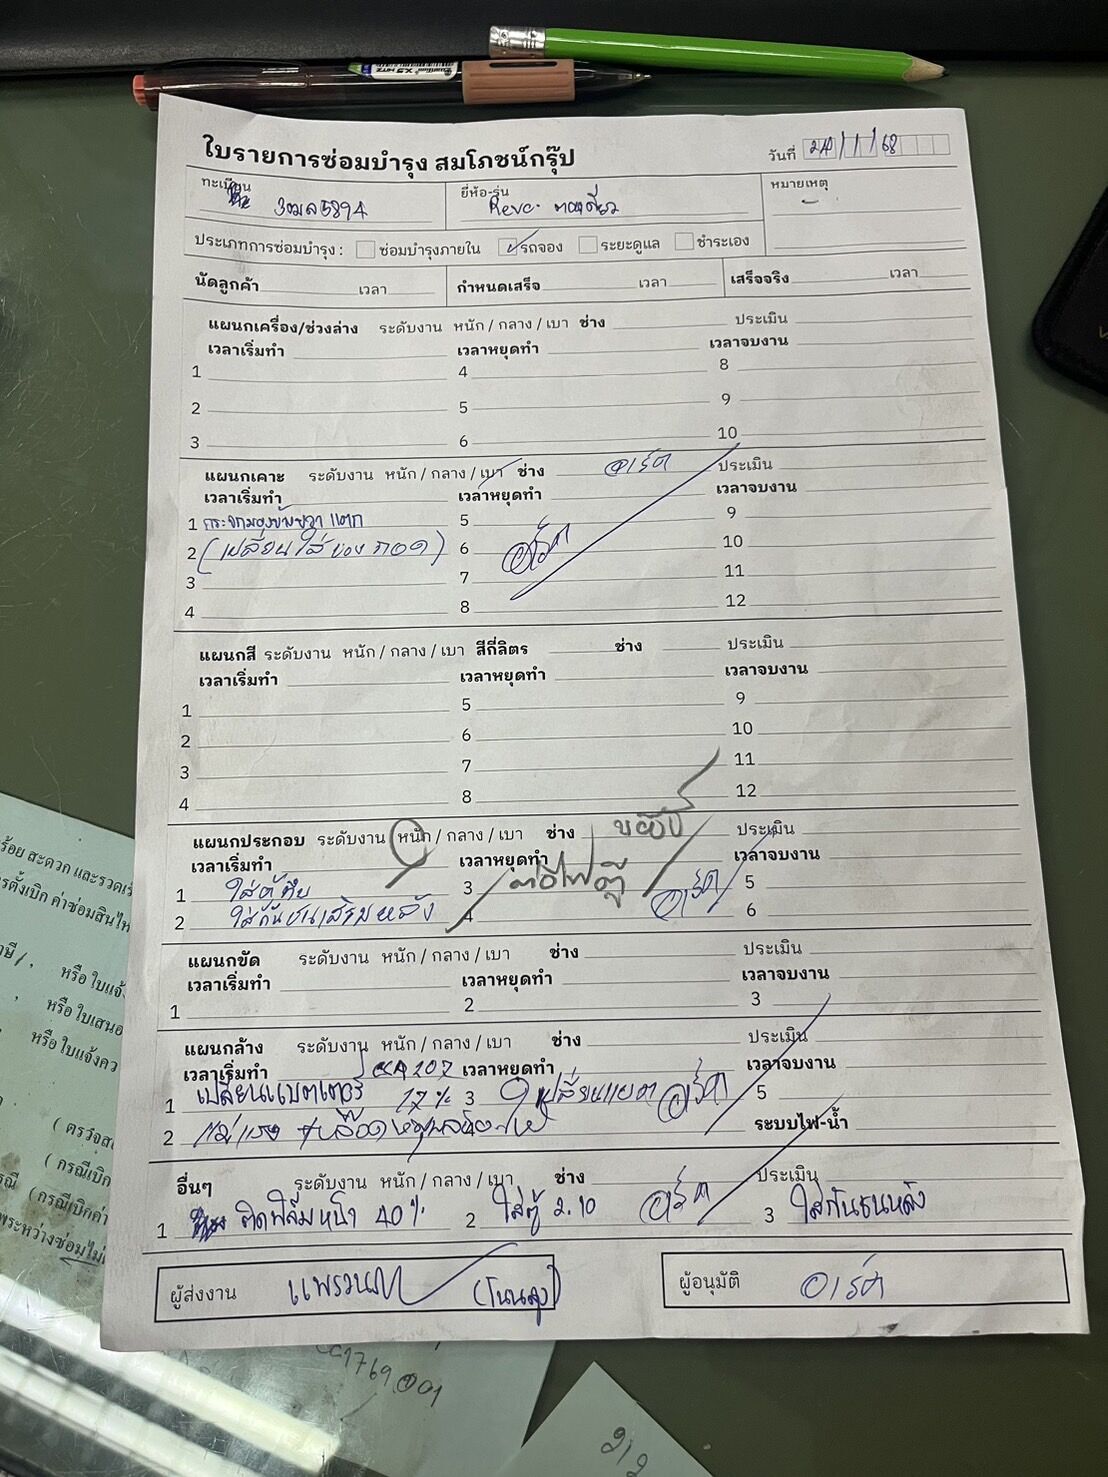 ใบรายการซ่อมบำรุง สมโภชน์กรุ๊ป
วันที่ /1/68
ทะเบียน 3ฒล5894
ยี่ห้อ-รุ่น Revo ตอนเดียว
หมายเหตุ -
ประเภทการซ่อมบำรุง : ซ่อมบำรุงภายใน รถจอง ระยะดูแล ชำระเอง
นัดลูกค้า เวลา กำหนดเสร็จ เวลา เสร็จจริง เวลา
แผนกเครื่อง/ช่วงล่าง ระดับงาน หนัก / กลาง / เบา ช่าง ประเมิน
เวลาเริ่มทำ เวลาหยุดทำ เวลาจบงาน
1 4 8
2 5 9
3 6 10
แผนกเคาะ ระดับงาน หนัก / กลาง / เบา ช่าง อาร์ต ประเมิน
เวลาเริ่มทำ เวลาหยุดทำ เวลาจบงาน
1 กระจกมองข้างขวา แตก 5 9
2 (เปลี่ยนใส่ของถอด) 6 อาร์ต 10
3 7 11
4 8 12
แผนกสี ระดับงาน หนัก / กลาง / เบา สีกี่ลิตร ช่าง ประเมิน
เวลาเริ่มทำ เวลาหยุดทำ เวลาจบงาน
1 5 9
2 6 10
3 7 11
4 8 12
แผนกประกอบ ระดับงาน หนัก / กลาง / เบา ช่าง ประเมิน
เวลาเริ่มทำ เวลาหยุดทำ เวลาจบงาน
1 ใส่ตู้ทึบ 3 ต่อไฟตู้ 5
2 ใส่กันชนเสริมหลัง 4 อาร์ต 6
แผนกขัด ระดับงาน หนัก / กลาง / เบา ช่าง ประเมิน
เวลาเริ่มทำ เวลาหยุดทำ เวลาจบงาน
1 2 3
แผนกล้าง ระดับงาน หนัก / กลาง / เบา ช่าง ประเมิน
เวลาเริ่มทำ CCA207 เวลาหยุดทำ เวลาจบงาน
1 เปลี่ยนแบตเตอรี่ 17% 3 เปลี่ยนแบต อาร์ต 5
2 ระบบไฟ-น้ำ
อื่นๆ ระดับงาน หนัก / กลาง / เบา ช่าง ประเมิน
1 ติดฟิล์มหน้า 40% 2 ใส่ตู้ 2.10 อาร์ต 3 ใส่กันชนหลัง
ผู้ส่งงาน แพรวนภา (โนนสูง)
ผู้อนุมัติ อาร์ต
ร้อย สะดวก และรวดเร็
ารตั้งเบิก ค่าซ่อมสินไห
หรือ ใบแจ้ง
หรือ ใบเสนอ
หรือ ใบแจ้งคว
( ตรวจส
( กรณีเบิก
(กรณีเบิกค่า
พระหว่างซ่อมไม่
2/2